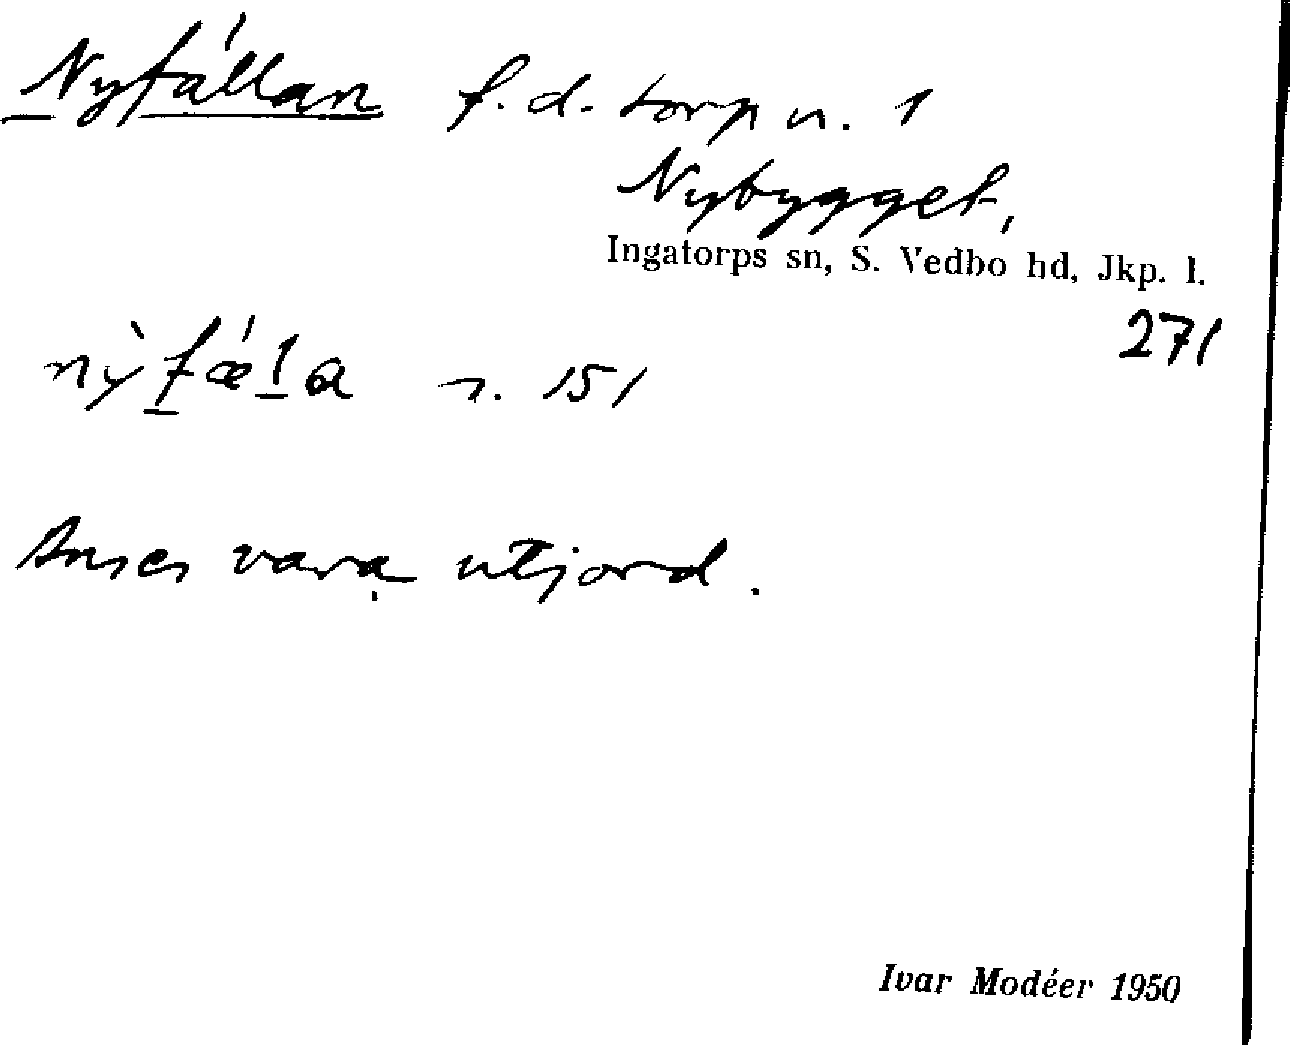 Nyfállan f.d. torp u. 1
Nybygget,
Ingatorps sn, S. Vedbo hd, Jkp. l.
271
nỳfǽla n. 151
Anses vara utjord.
Ivar Modéer 1950